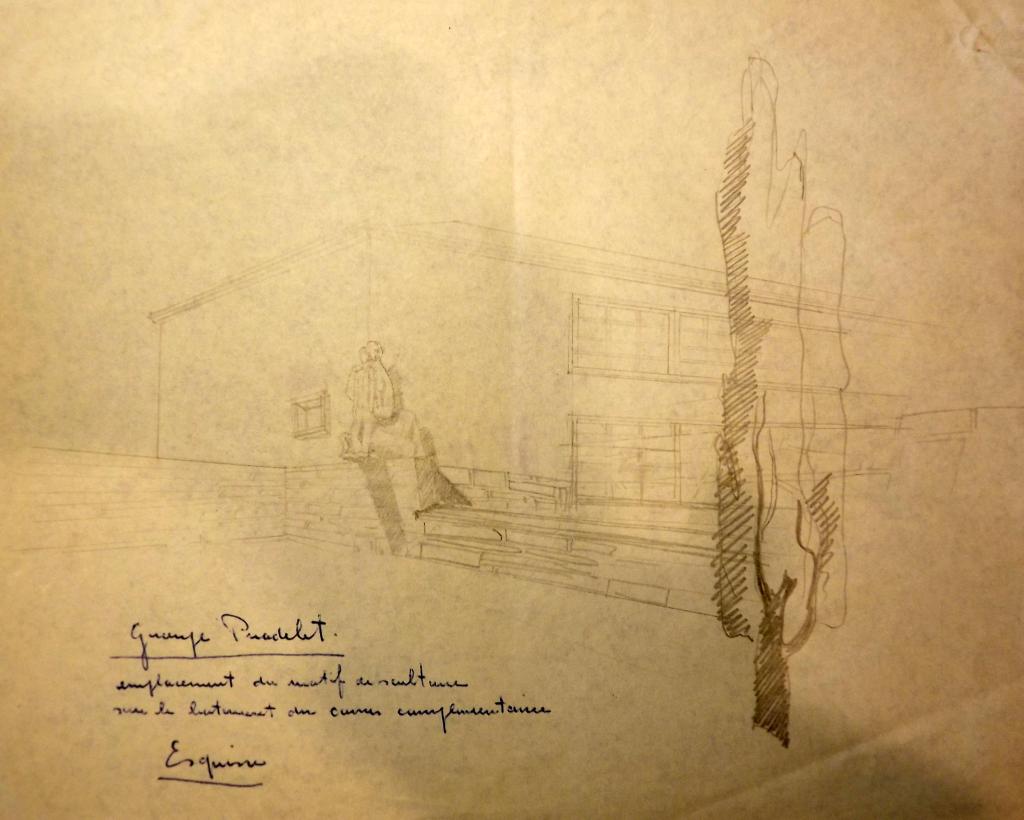 Grange Pradelet.
emplacement du motif de sculture
sur le batiment du cours complémentaire
Esquisse